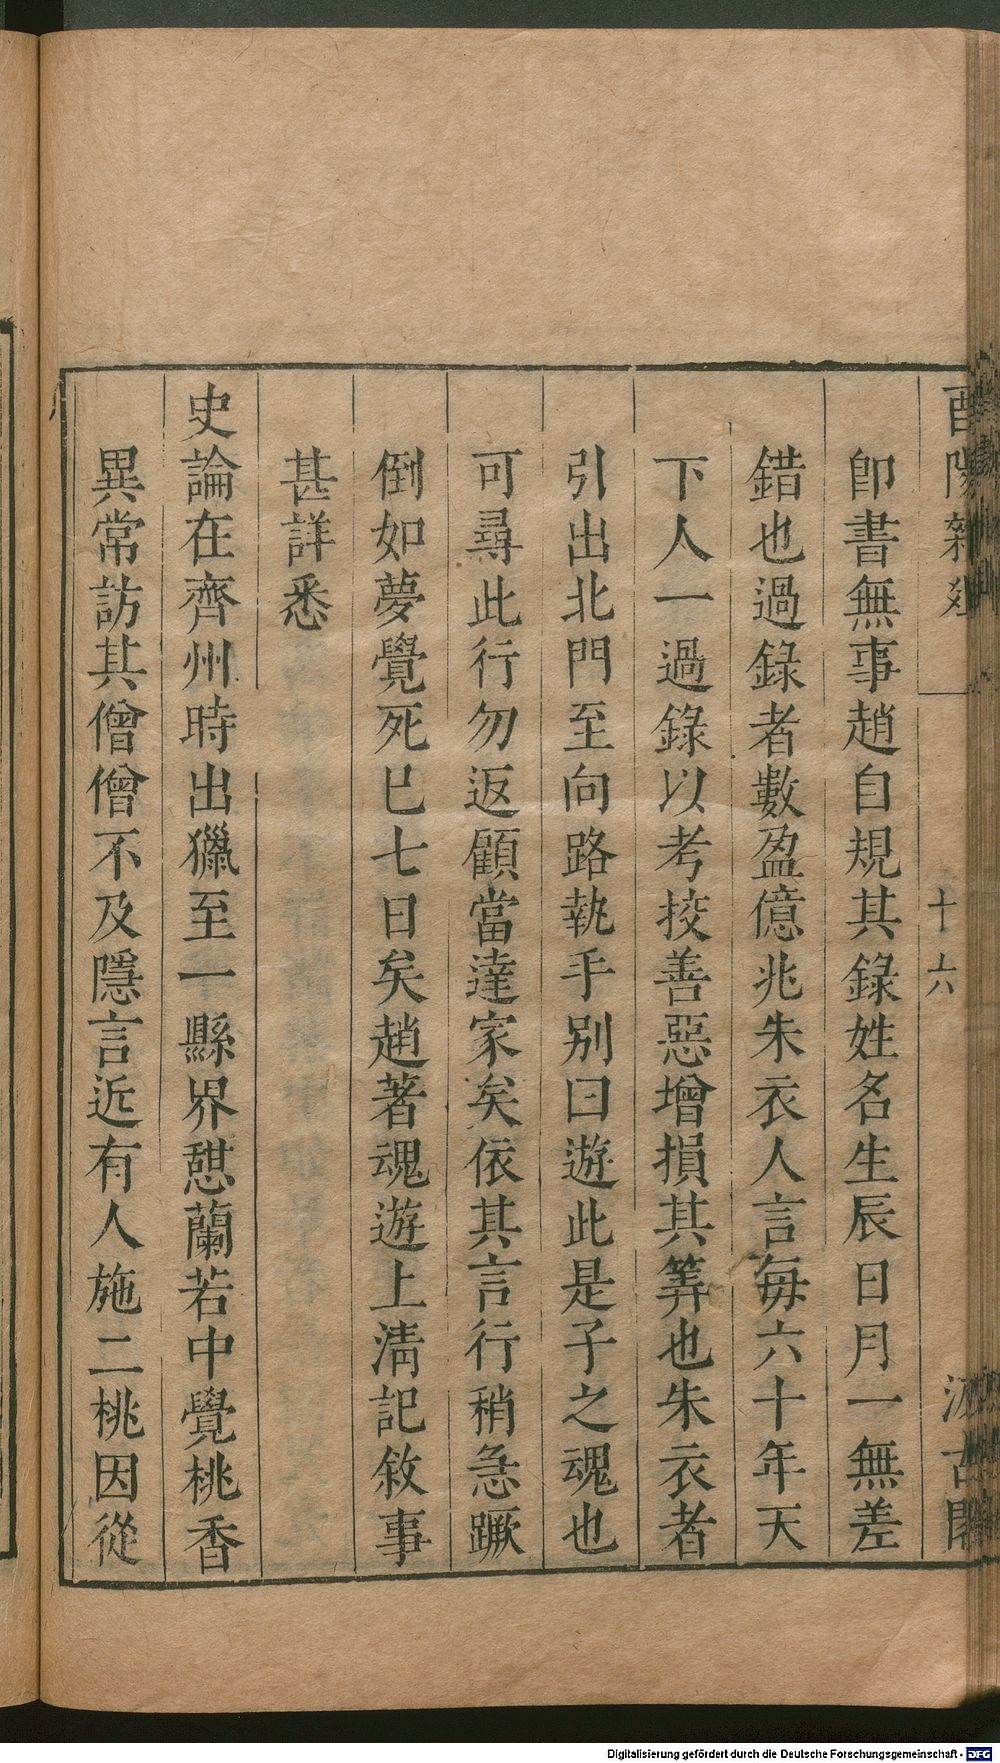 酉陽雜俎
十六
汲古閣
卽書無事趙自規其錄姓名生辰日月一無差
錯也過錄者數盈億兆朱衣人言每六十年天
下人一過錄以考挍善惡增損其筭也朱衣者
引出北門至向路執手別曰遊此是子之魂也
可尋此行勿返顧當達家矣依其言行稍急蹶
倒如夢覺死已七日矣趙著魂遊上淸記敘事
甚詳悉
史論在齊州時出獵至一縣界憇蘭若中覺桃香
異常訪其僧僧不及隱言近有人施二桃因從
Digitalisierung gefördert durch die Deutsche Forschungsgemeinschaft - DFG